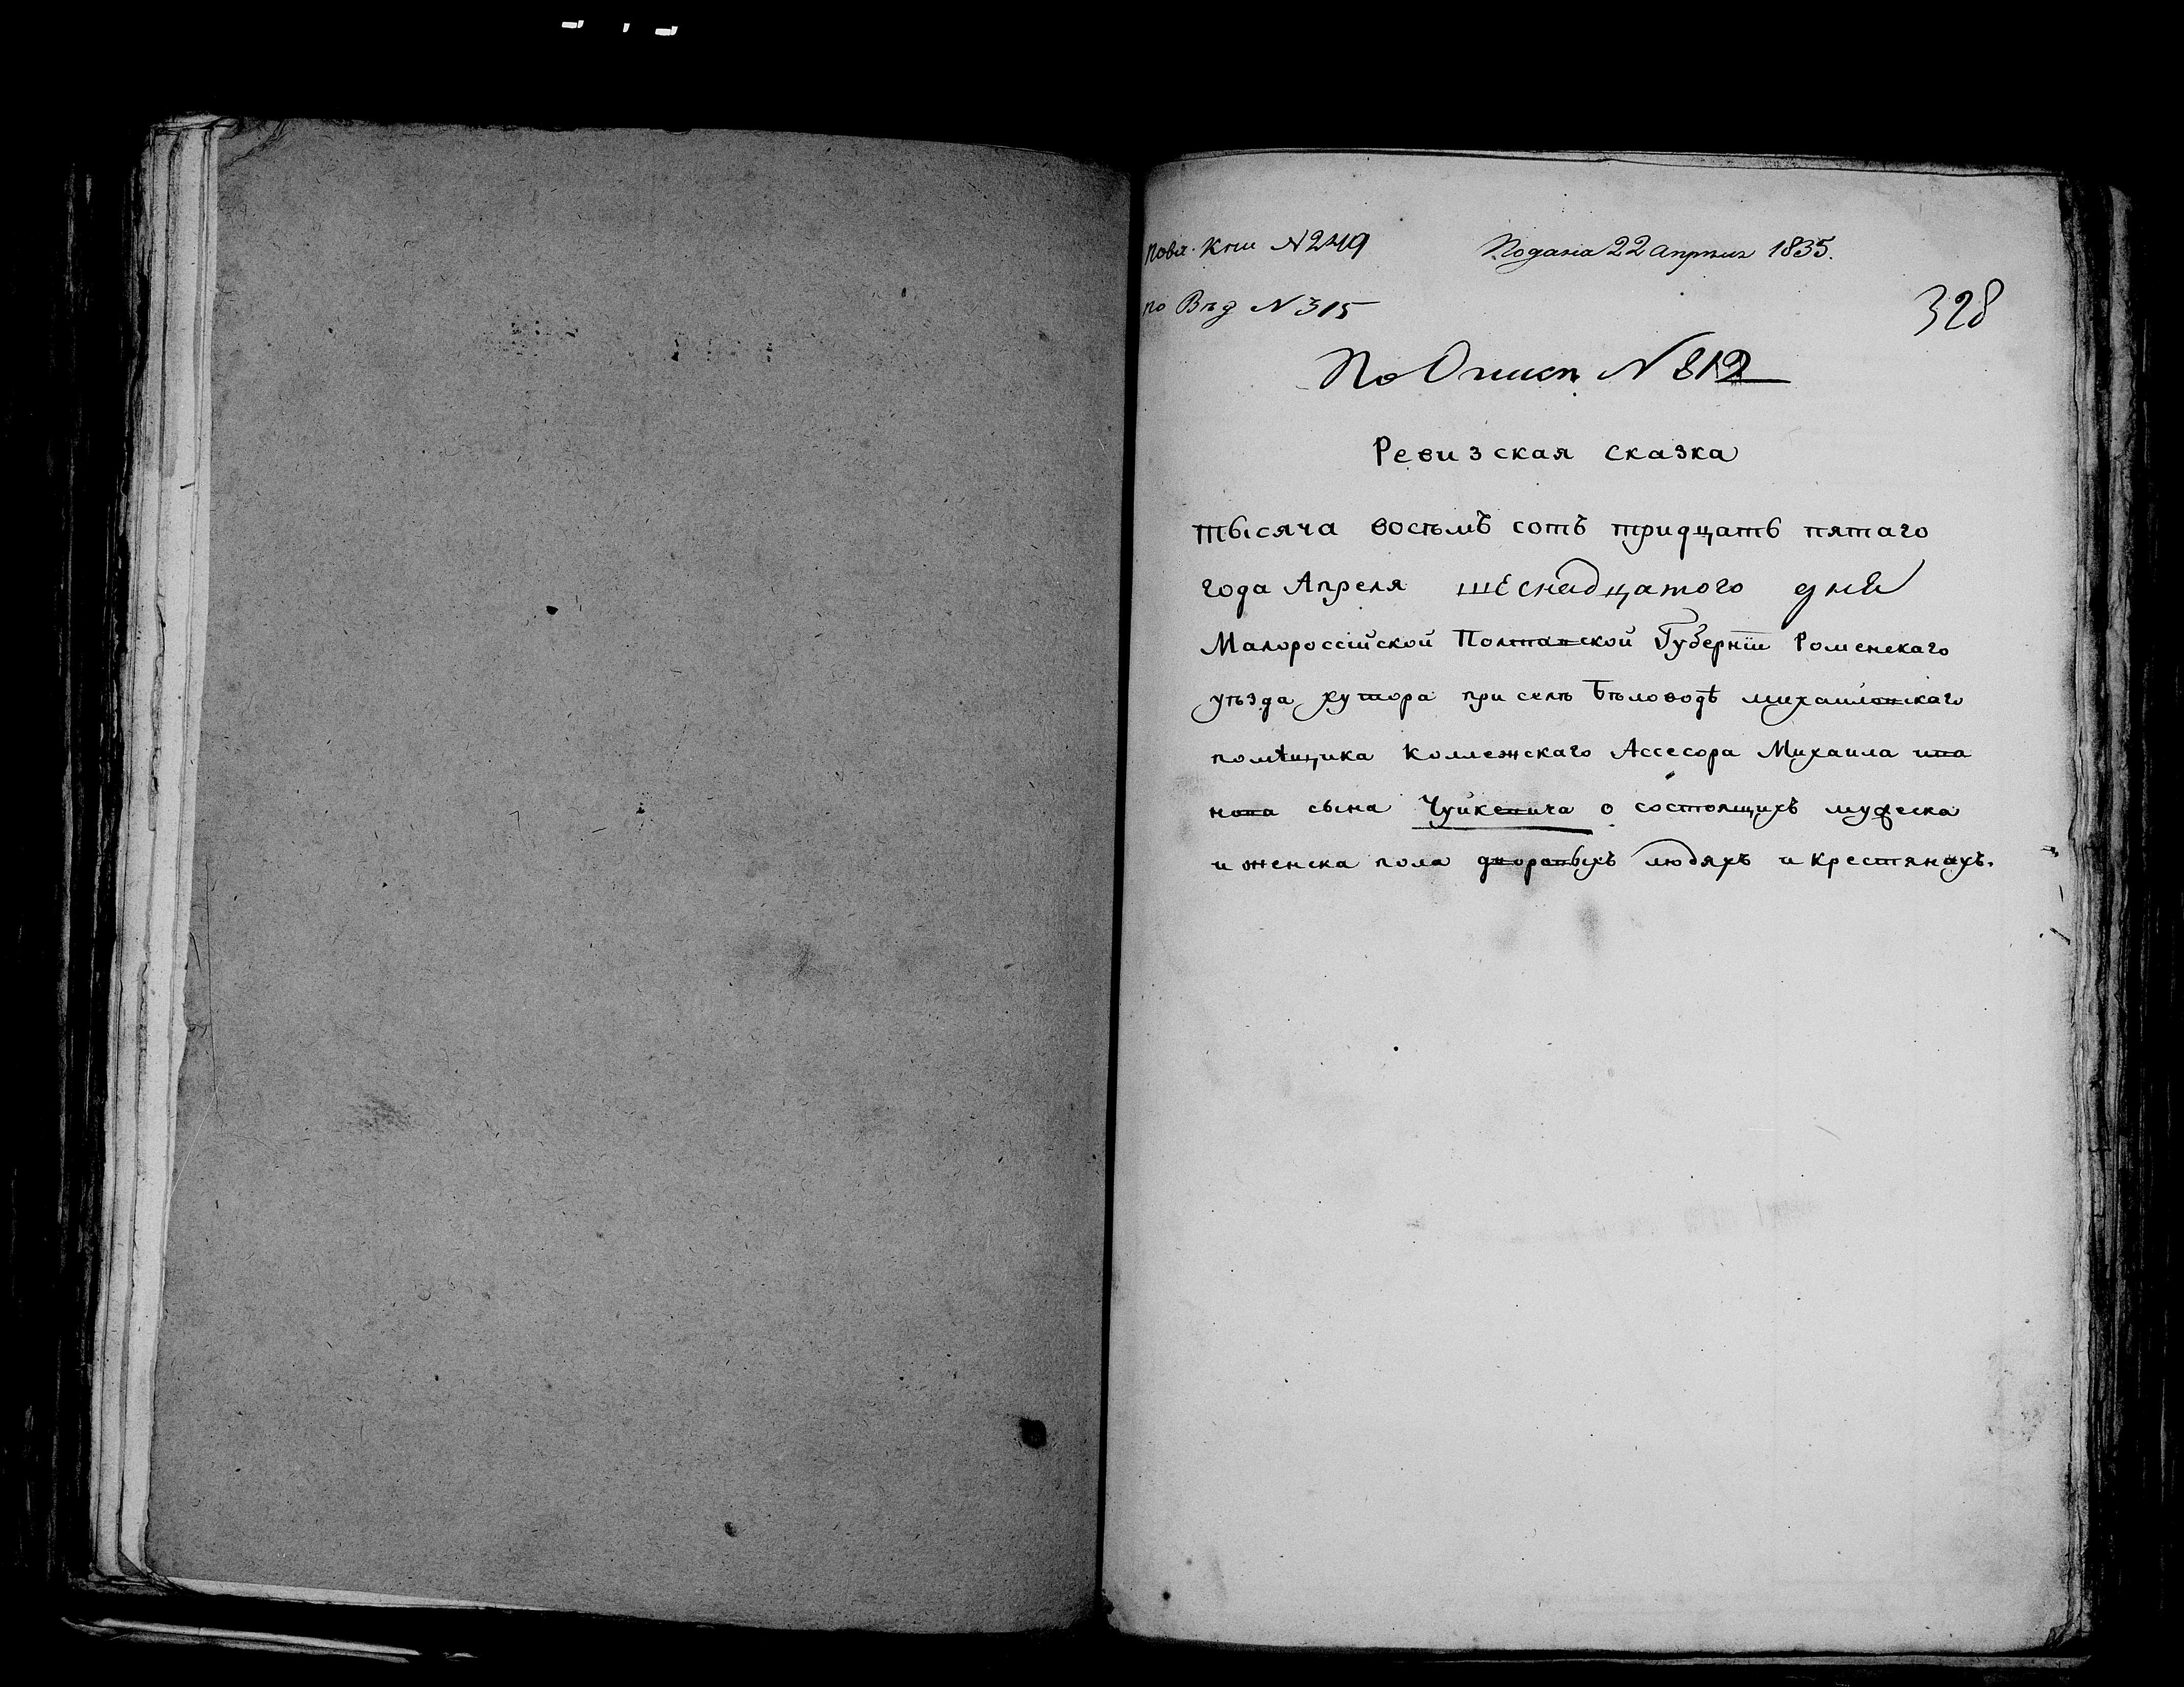 по Кни N 249
Подана 22 апреля 1835.
по Вѣд N 315
328
По Описи N 812
Ревизская сказка
тысяча восѣмъ сотъ тридцать пятаго
года Апреля шеснадцатого дня
Малороссійской Полтавской Губерніи Роменскаго
уѣзда хутора при селѣ Бѣловодѣ михаиловскаго
помѣщика Коллежскаго Ассесора Михаила ива
нова сына Чуйкевича о состоящихъ мужеска
и женска пола дворовыхъ людяхъ и крестянахъ.